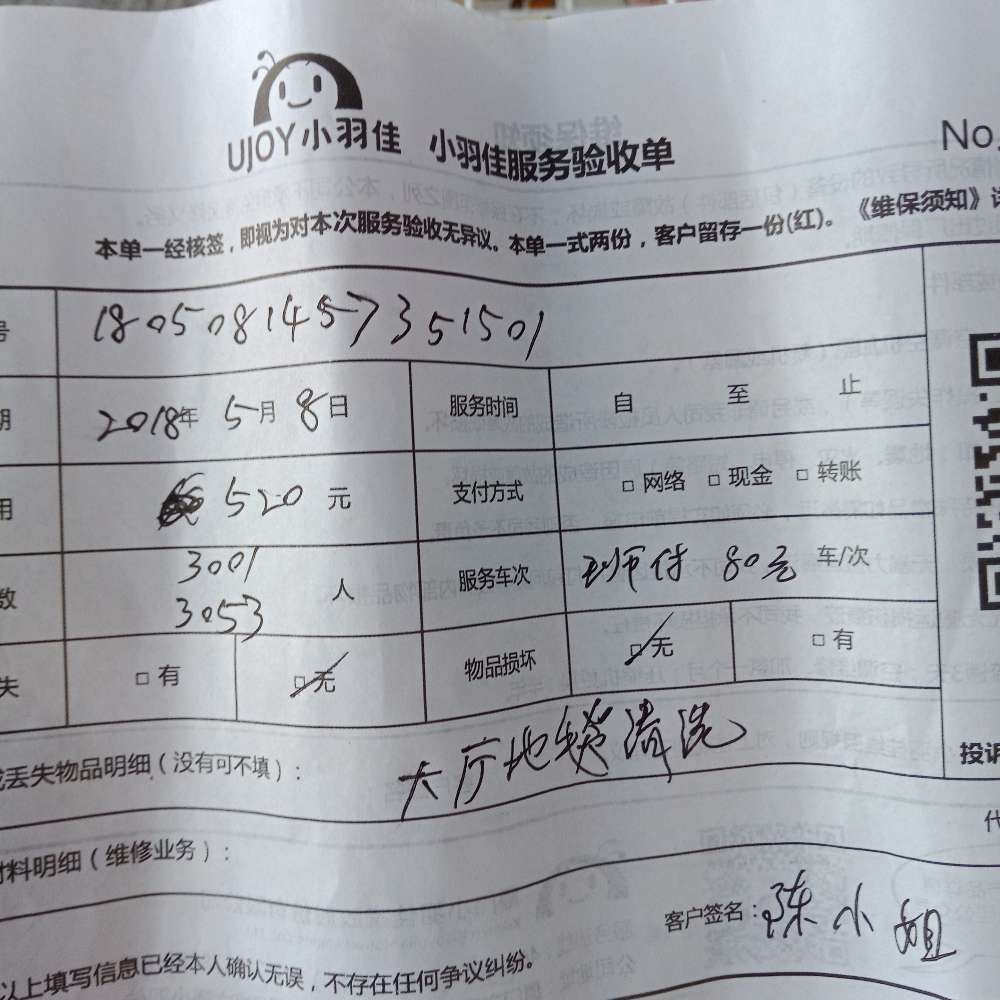 UJOY小羽佳 小羽佳服务验收单
No.
本单一经核签，即视为对本次服务验收无异议。本单一式两份，客户留存一份(红)。《维保须知》详
号 1805081457351501
期 2018年 5月 8日 服务时间 自 至 止
用 520 元 支付方式 □ 网络 □ 现金 □ 转账
数 3001 3053 人 服务车次 80元 车/次
失 □ 有 □ 无 物品损坏 □ 无 □ 有
丢失物品明细（没有可不填）： 大厅地毯清洗
投诉
材料明细（维修业务）：
代
客户签名： 陈小姐
以上填写信息已经本人确认无误，不存在任何争议纠纷。